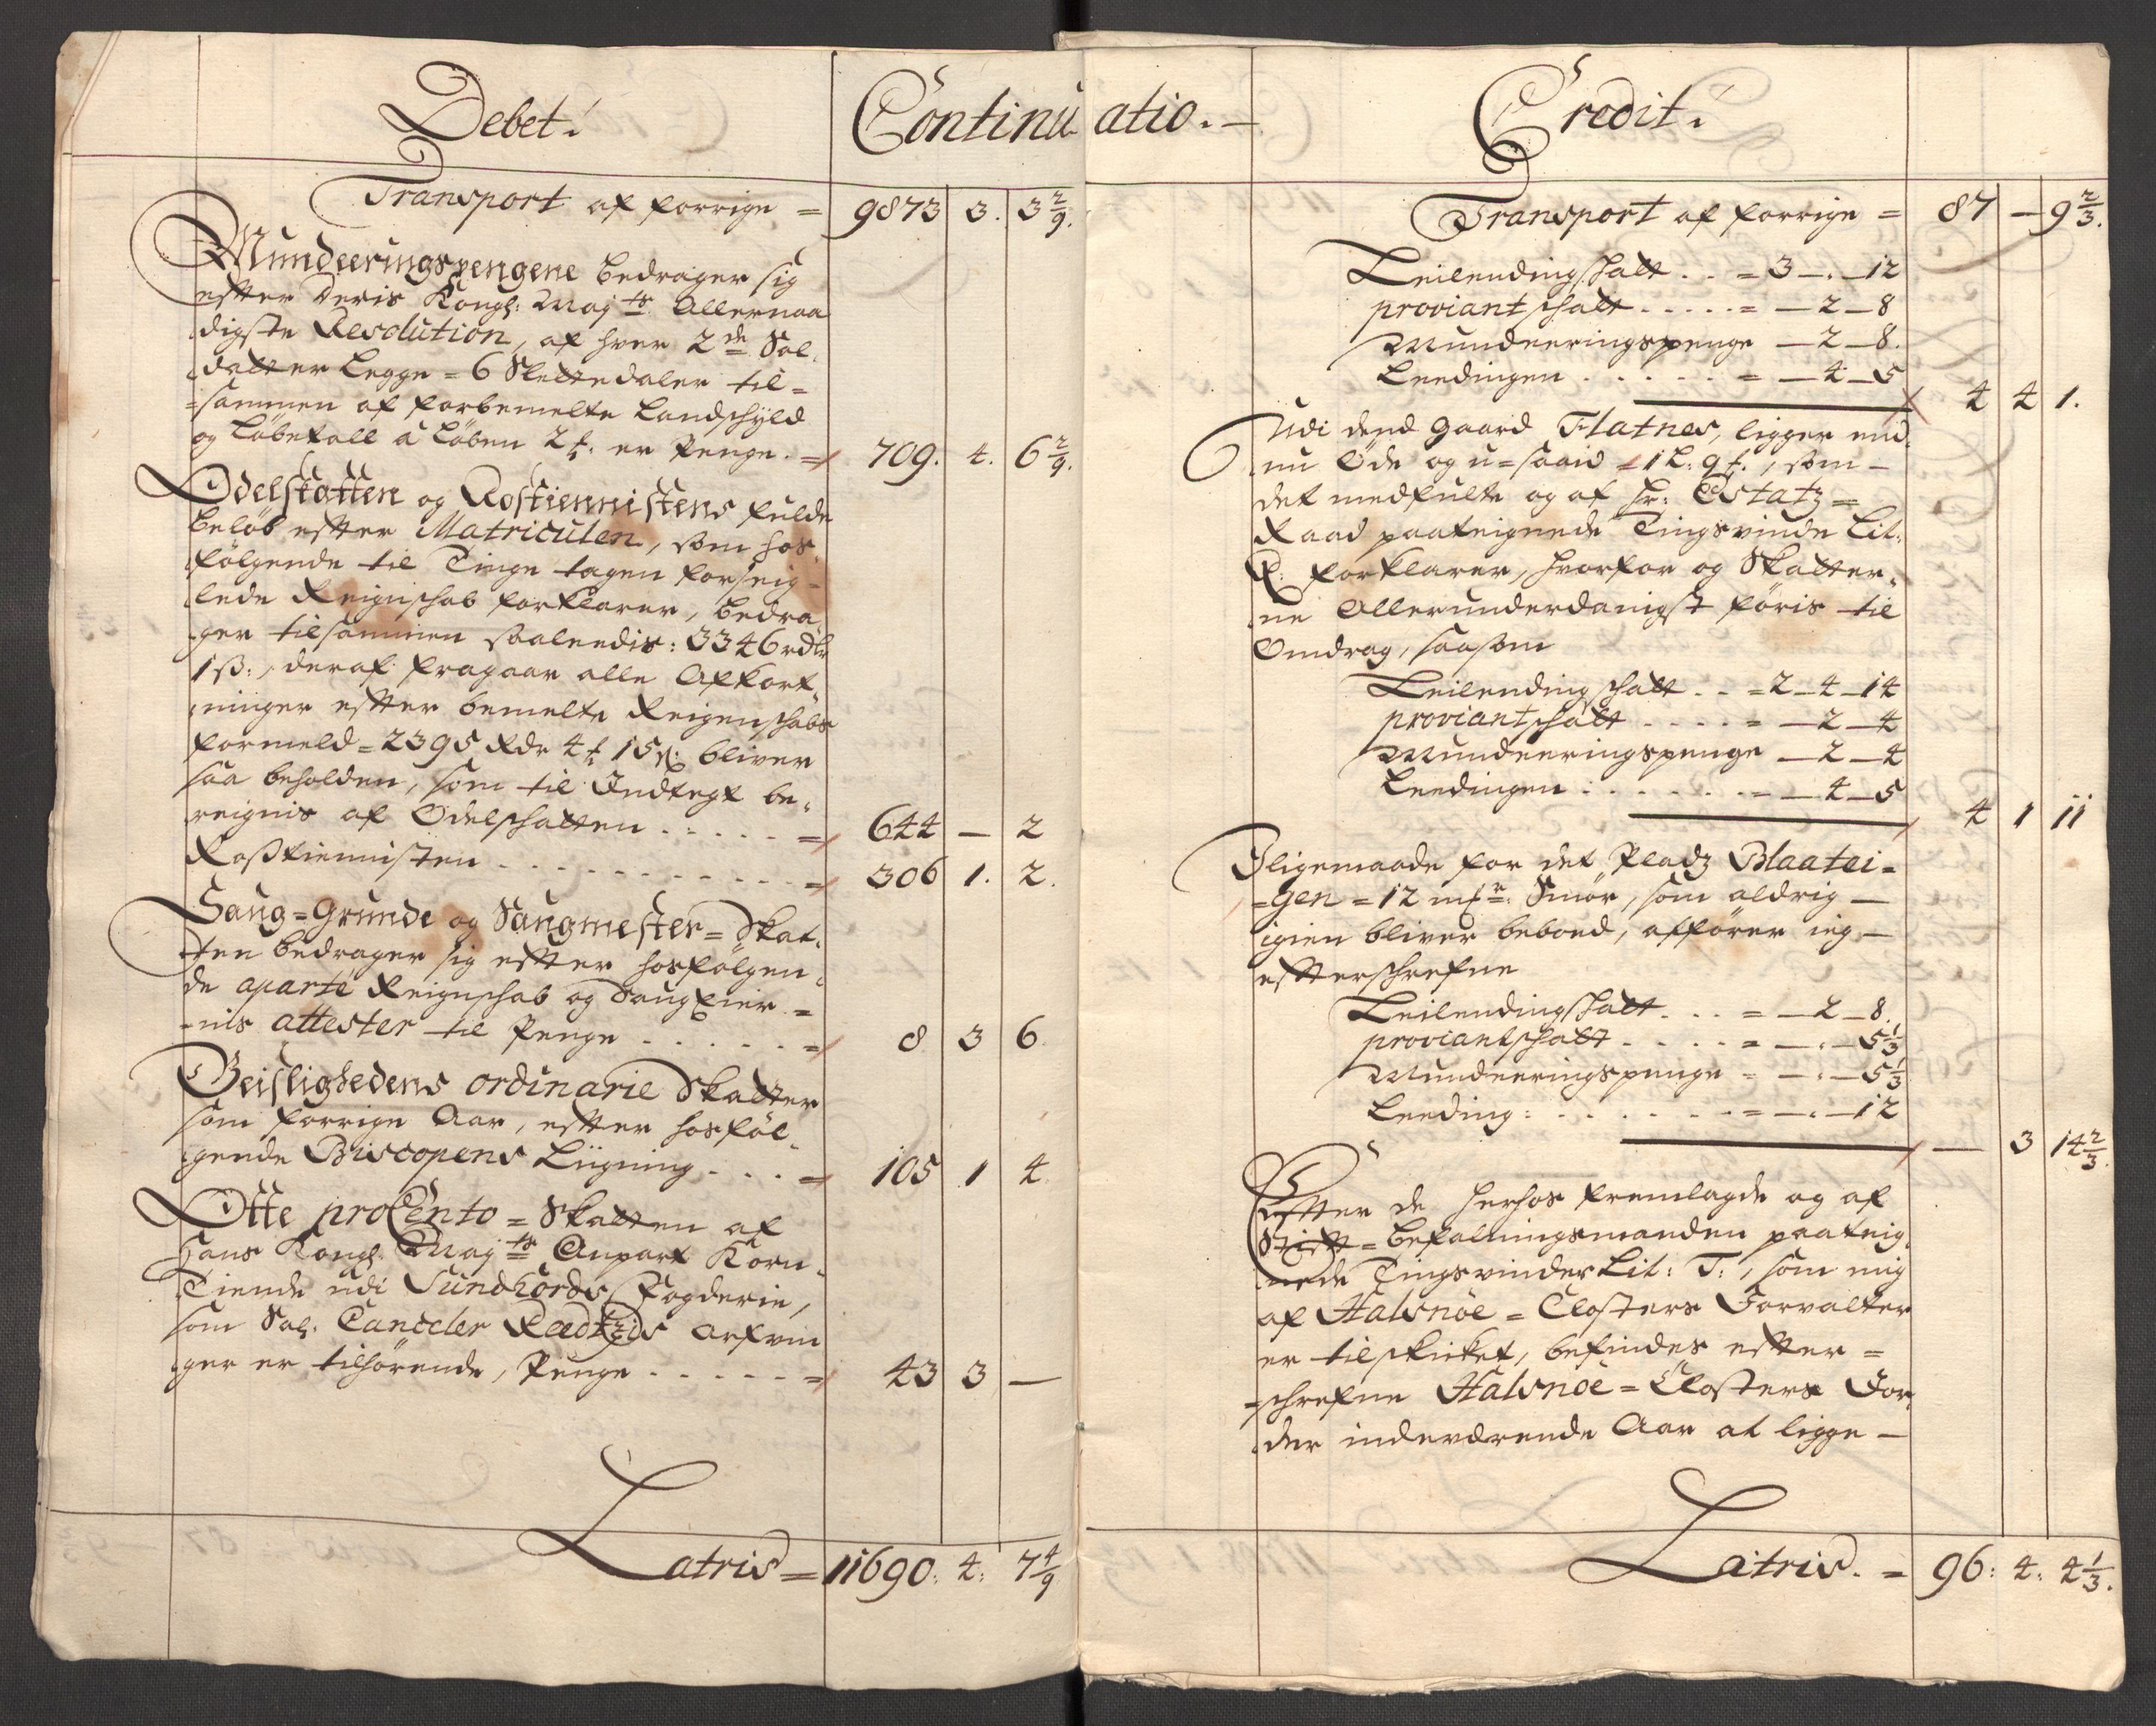 Debet.
Continuatio.
Transport af forrige = 9873 3. 3 2/9.
Munderingspengene bedrager sig
efter deris Kongl: Maj:ts Allernaa
digste Resolution, af hver 2de Sol-
datter Legge = 6 Slettedaler til=
=sammen af forbemelte Landschyld
og Løbetall a Løben 2 ƒ. er Penge. = 709. 4. 6 2/9.
Odelskatten og Rostiennistens fulde
beløb efter Matriculen, som hos
følgende til Tinge tagen forseig-
lede Reignschab forklarer, bedra
ger tilsammen saaleedis: 3346 rdlr
1 ß:, deraf fragaar alle Afkort
ninger efter bemelte Reigenschabs
formeld = 2395 Rdr 4 ƒ 15 ß: bliver
saa beholden, som til Indtegt be-
reignis af Odelschatten . . . . . = 644 — 2
Rosstiennisten . . . . . . . . . . = 306 1. 2.
Saug=Grunde og Saugmester=Skat-
ten bedrager sig efter hosfølgen-
de aparte Reignschab og Saug Eier=
-nis attester til Penge . . . . . = 8 3 6.
Geistlighedens ordinarie Skatter
som forrige Aar, efter hosføl-
gende Biscopens Liigning . . . = 105 1 4
Otte proCento = Skatten af
Hans Kongl: Maj:ts Anpart Korn-
Tiende udi Sundhords Fogderie,
som Sal: Canceler Rædtzis Arfvin
ger er tilhørende, Penge . . . . . = 43 3 —
Latris = 11690. 4: 7 4/9
Credit.
Transport af forrige = 87 — 9 2/3.
Leilendingschatt . . = 3 — . — 12
proviantschatt . . . . . = — 2 — 8
Munderingspenge — 2 — 8.
Leedingen . . . . . = — 4 — 5
4 4 1.
Udi dend Gaard Flatnes, ligger end-
nu Øde og u=saaid = 1 L: 9 ƒ., som —
det medfulte og af Hr: Estatz=
Raad paateignede Tingsvinde Lit:
forklarer, hvorfor og Skatter-
ne Allerunderdanigst føris til
Omdrag, saasom
Leilendingschatt . . = 2 — 4 — 14
proviantschatt . . . . = — 2 — 4
Munderingspenge — 2 — 4
Leedingen . . . . . . = — 4 — 5
4 1 11
Iligemaade for det Pladz Blaatei=
=gen = 12 mƒr: Smør, som aldrig —
igien bliver beboed, affører ieg —
efterschrefne
Leilendingschatt . . . = — 2 — 8.
proviantschatt . . . . = — . — 5 1/3
Munderingspenge = — . — 5 1/3
Leeding: . . . . . . = — . — 12
— 3 14 2/3.
Efter de herhos fremlagde og af
Stift=befalningsmanden paateig-
nede Tingsvinder Lit: T:, som mig
af Halsnöe = Closters Forvalter
er tilskicket, befindes efter=
=schrefne Halsnöe = Closters Jor-
der indeværende Aar at ligge —
Latris. = 96: 4: 4 1/3.